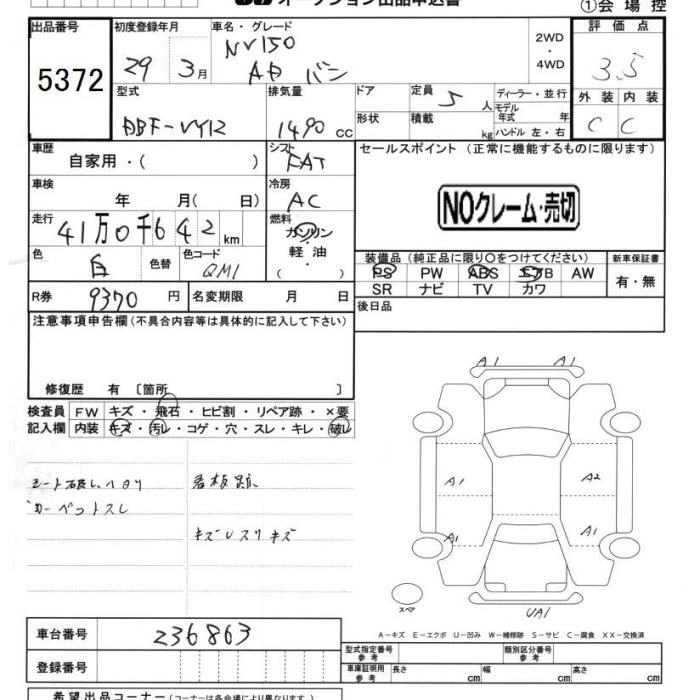 オークション出品申込書
①会場控
出品番号
5372
初度登録年月
29 3月
車名・グレード
NV150
AD バン
2WD
・
4WD
評価点
3.5
外装 内装
C C
型式
DBF-VY12
排気量
1490 cc
ドア
形状
定員 5人
積載 kg
ディーラー・並行
モデル年式 年
ハンドル 左・右
車歴
自家用・( )
シフト
FAT
セールスポイント (正常に機能するものに限ります)
NOクレーム・売切
車検
年 月( 日)
冷房
AC
走行
41万0千642km
燃料
ガソリン
・
軽油
・
( )
色
白
色替
色コード
QM1
装備品 (純正品に限り○をつけてください)
PS PW ABS エアB AW
SR ナビ TV カワ
新車保証書
有・無
R券 9370円
名変期限 月 日
後日品
注意事項申告欄(不具合内容等は具体的に記入して下さい)
修復歴 有 〔箇所 〕
検査員記入欄
FW キズ・飛石・ヒビ割・リペア跡・×要
内装 キズ・汚レ・コゲ・穴・スレ・キレ・破レ
シート破レ ハリ
カーペットスレ
看板跡
キズUスリキズ
A1 A1
A1 A2
A1 A1
スペア
UA1
A－キズ E－エクボ U－凹み W－補修跡 S－サビ C－腐食 XX－交換済
車台番号 236863
登録番号
型式指定番号 参考
類別区分番号 参考
車庫証明用 参考
長さ cm 幅 cm 高さ cm
希望出品コーナー(コーナーは各会場により異なります。)